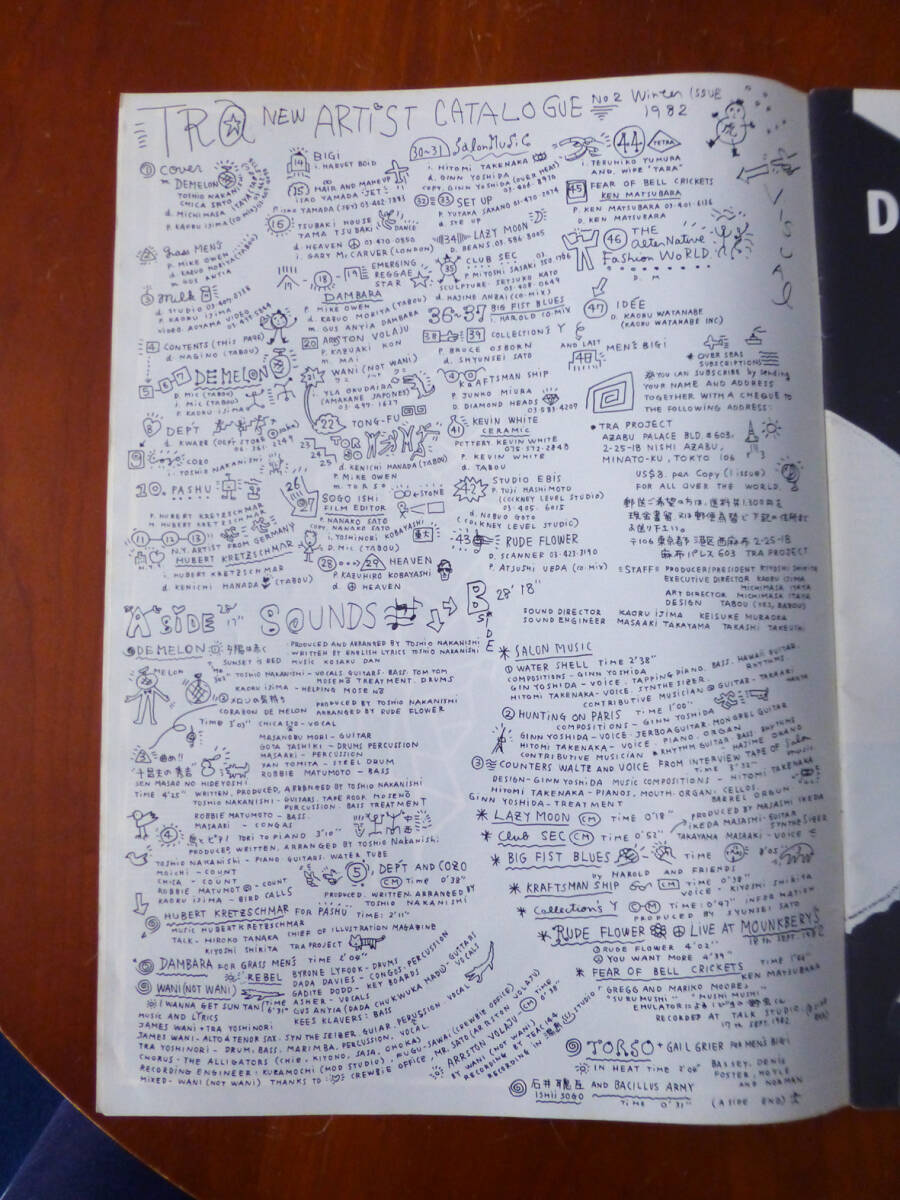 TRA NEW ARTIST CATALOGUE No 2 Winter ISSUE
1982
VISUAL
① COVER
m. DEMELON
TOSHIO NAKANISHI
CHICA SATO
d. MICHIMASA
P. KAORU IJIMA
GRASS MEN'S
P. MIKE OWEN
d. KABUO MORIYA (TABOU)
m. GUS ANYIA
3 milk
d. STUDIO
P. KAORU IJIMA
VIDEO. AOYAMA VIDEO
4 CONTENTS (THIS PAGE)
d. NAGINO (TABOU)
5 6 7 DEMELON
D. MIC (TABOU)
i. MIC (TABOU)
P. KAORU IJIMA
8 DEP'T
d. KWARE (DEP'T STORE
9 COZO
i. TOSHIO NAKANISHI
10. PASHU
P. HUBERT KRETZSCHMAR
M. HUBERT KRETZSCHMAR
11 12 13
N.Y. ARTIST FROM GERMANY
HUBERT KRETZSCHMAR
i. HUBERT KRETZSCHMAR
d. KENICHI HANADA (TABOU)
14 BIGI
i. HARVEY BOID
15 HAIR AND MAKE UP
ISAO YAMADA "JET"
P. ISAO YAMADA (JET) 03-402-1893
16 TSUBAKI HOUSE
TAMA TSUBAKI DANCE
d. HEAVEN 03-470-0850
i. GARY McCARVER (LONDON)
18 19 EMERGING
REGGAE
STAR
DAMBARA
P. MIKE OWEN
d. KABUO MORIYA (TABOU)
m. GUS ANYIA DAMBARA
20 ARRSTON VOLAJU
P. KAZUAKI KON
m. MAI
21 WANI (NOT WANI)
ワニ ノット ワニ
i. YLA OKUDAIRA
(AMAKANE JAPONES)
03-497-1637
22 TONG-FU
23 24 25 TORSO
d. KENICHI HANADA (TABOU)
P. MIKE OWEN
m. TORSO
26 27 SOGO ISHI STONE
FILM EDITOR
P. NANAKO SATO
COPY. NANAKO SATO
i. YOSHINORI KOBAYASHI
D. MIC (TABOU)
28 29 HEAVEN
P. KAZUHIRO KOBAYASHI
d. HEAVEN
30~31 Salon Music
i. HITOMI TAKENAKA
d. GINN YOSHIDA
COPY. GINN YOSHIDA (OVER HEAT)
03-406-8970
32 33 SET UP
P. YUTAKA SAKANO 03-470-1574
d. SET UP
34 LAZY MOON
D. BEANS. 03-586-8005
35 CLUB SEC
P. MITOSHI SASAKI
SCULPTURE. SETSUKO KATO
03-408-0649
d. HAJIME ANRAI (CO-MIX)
36~37 BIG FIST BLUES
i. HAROLD CO-MIX
38 39 COLLECTION'S Y
P. BRUCE OSBORN
d. SHYUNSEI SATO
40 KRAFTSMAN SHIP
P. JUNKO MIURA
D. DIAMOND HEADS
03-583-4207
41 KEVIN WHITE
CERAMIC
POTTERY. KEVIN WHITE
075-572-2848
P. KEVIN WHITE
d. TABOU
42 STUDIO EBIS
P. YUJI HASHIMOTO
(COCKNEY LEVEL STUDIO)
03-405-6015
d. NOBUO GOTO
(COCKNEY LEVEL STUDIO)
43 RUDE FLOWER
D. SCANNER 03-423-3190
P. ATSUSHI UEDA (CO-MIX)
44 TETRA
i. TERUHIKO YUMURA
AND. WIFE "TARA"
45 FEAR OF BELL CRICKETS
KEN MATSUBARA
P. KEN MATSUBARA 03-401-6136
D. KEN MATSUBARA
46 THE
alterNative
Fashion WoRLD
D. M
47 IDÉE
D. KAORU WATANABE
(KAORU WATANABE INC)
AND LAST 48 MEN'S BIGI
* OVER SEAS
SUBSCRIPTIONS
YOU CAN SUBSCRIBE by sending
YOUR NAME AND ADDRESS
TOGETHER WITH A CHEQUE TO
THE FOLLOWING ADDRESS:
• TRA PROJECT
AZABU PALACE BLD. #603,
2-25-18 NISHI AZABU,
MINATO-KU, TOKYO 106
US$8. per Copy (1 issue)
FOR ALL OVER THE WORLD.
郵送ご希望の方は、送料共1,300円を
現金書留、又は郵便為替で下記の住所まで
お送り下さい。
〒106 東京都港区西麻布2-25-18
麻布パレス603 TRA PROJECT
STAFF PRODUCER/PRESIDENT KIYOSHI SHIKITA
EXECUTIVE DIRECTOR KAORU IJIMA
MICHIMASA ITAYA
ART DIRECTOR MICHIMASA ITAYA
DESIGN TABOU (YES, BABOU)
SOUND DIRECTOR KAORU IJIMA KEISUKE MURAOKA
SOUND ENGINEER MASAAKI TAKAYAMA TAKASHI TAKEUTHI
"A" SIDE 28' 17" SOUNDS
B SIDE 28' 18"
DEMELON 夕陽は赤く
"SUNSET is RED
PRODUCED AND ARRANGED BY TOSHIO NAKANISHI
WRITTEN BY ENGLISH LYRICS TOSHIO NAKANISHI
MUSIC KOSAKU DAN
TOSHIO NAKANISHI - VOCALS. GUITARS. BASS. TOM TOM
TREATMENT. DRUMS
KAORU IJIMA - HELPING
MELON
② メロンの気持ち
CORABON DE MELON
PRODUCED BY TOSHIO NAKANISHI
ARRANGED BY RUDE FLOWER
TIME 3'07" CHICA - VOCAL
MASANOBU MORI - GUITAR
GOTA YASHIKI - DRUMS PERCUSSION
MASAAKI - PERCUSSION
YAN TOMITA - STEEL DRUM
ROBBIE MATUMOTO - BASS
"千昌夫の秀吉"
SEN MASAO NO HIDEYOSHI
TIME 4'25" WRITTEN, PRODUCED, ARRANGED BY TOSHIO NAKANISHI
TOSHIO NAKANISHI - GUITARS. TAPE ROOP.
PERCUSSION. BASS TREATMENT
ROBBIE MATUMOTO - BASS.
MASAAKI - CONGAS
④ 鳥とピアノ TORI TO PIANO 3'10"
PRODUCED, WRITTEN, ARRANGED BY TOSHIO NAKANISHI
TOSHIO NAKANISHI - PIANO. GUITARS. WATER TUBE
MOICHI - COUNT
CHICA - COUNT
ROBBIE MATUMOTO - COUNT
KAORU IJIMA - BIRD CALLS
⑤ DEP'T AND COZO
CM TIME 0'38"
PRODUCED. WRITTEN. ARRANGED BY
TOSHIO NAKANISHI
HUBERT KRETZSCHMAR FOR PASHU TIME: 2'11"
MUSIC HUBERT KRETZSCHMAR
TALK - HIROKO TANAKA CHIEF OF ILLUSTRATION MAGAZINE
KIYOSHI SHIKITA TRA PROJECT
DAMBARA FOR GRASS MEN'S TIME 2'04"
REBEL
BYRONE LYFOOK - DRUMS
DADA DAVIES - CONGOS. PERCUSSION
GADITE DODD - KEY BOARDS
ASHER - VOCALS
GUS ANYIA (DADA CHUKWUKA MADU) - GUITARS VOCALS
KEES KLAVERS: BASS
WANI (NOT WANI)
I WANNA GET SUN TAN (TIME 6'35")
MUSIC AND LYRICS
JAMES WANI + TRA YOSHINORI
JAMES WANI - ALTO & TENOR SAX. SYNTHESIZER. GUITAR. PERCUSSION. VOCAL
TRA YOSHINORI - DRUM, BASS, MARIMBA, PERCUSSION, VOCAL
CHORUS - THE ALLIGATORS (CHIE, KIYONO, SASA, OHOKA)
RECORDING ENGINEER: KURAMOCHI (MOD STUDIO), MUGU-SAWA (CREWBIE OFFICE)
MIXED - WANI (NOT WANI) THANKS TO: CREWBIE OFFICE, MR. SATO (ARRSTON VOLAJU)
ARRSTON VOLAJU CM TIME 0'38"
BY WANI (NOT WANI)
RECORDING BY TEAC 144
RECORDING IN STUDIO
* SALON MUSIC
① WATER SHELL TIME 2'38"
COMPOSITIONS - GINN YOSHIDA
GIN YOSHIDA - VOICE. TAPPING PIANO. BASS. HAWAII GUITAR.
HITOMI TAKENAKA - VOICE. SYNTHESIZER. RHYTHMS
CONTRIBUTIVE MUSICIAN
② HUNTING ON PARIS TIME 1'00"
COMPOSITIONS - GINN YOSHIDA
GINN YOSHIDA - VOICE. JERBOA GUITAR. MONGREL GUITAR
HITOMI TAKENAKA - VOICE. PIANO. ORGAN
CONTRIBUTIVE MUSICIAN RHYTHM GUITAR. BASS. RHYTHMS - HAJIME OKANO
③ COUNTERS WALTZ AND VOICE FROM INTERVIEW TAPE OF Salon music
TIME 3'32"
DESIGN - GINN YOSHIDA MUSIC COMPOSITIONS - HITOMI TAKENAKA
HITOMI TAKENAKA - PIANOS, MOUTH-ORGAN, CELLOS,
BARREL ORGUN
GINN YOSHIDA - TREATMENT
* LAZY MOON CM TIME 0'18"
PRODUCED BY MASASHI IKEDA
IKEDA MASASHI - GUITAR
SYNTHESIZER
TAKAYAMA MASAAKI - VOICE
* Club SEC CM TIME 0'52"
* BIG FIST BLUES TIME 3'05"
BY HAROLD AND FRIENDS
* KRAFTSMAN SHIP CM TIME 0'38"
VOICE - KIYOSHI SHIKITA
* Collection's Y CM TIME 0'47" INFORMATION
PRODUCED BY SYUNSEI SATO
* RUDE FLOWER LIVE AT MOUNKBERY'S
18th SEPT. 1982
① RUDE FLOWER 4'02"
② YOU WANT MORE 4'39"
* FEAR OF BELL CRICKETS TIME 1'00"
KEN MATSUBARA
"GREGG AND MARIKO MOORE"
"SUZUMUSHI" "MUSHI MUSHI"
RECORDED AT TALK STUDIO
17th SEPT. 1982
TORSO + GAIL GRIER FOR MEN'S BIGI
IN HEAT TIME 2'06" BASSEY, DENIS
FOSTER, HOYLE
AND NORMAN
石井聰亙 AND BACILLUS ARMY
ISHII SOGO
TIME 0'31" (A SIDE END)
D